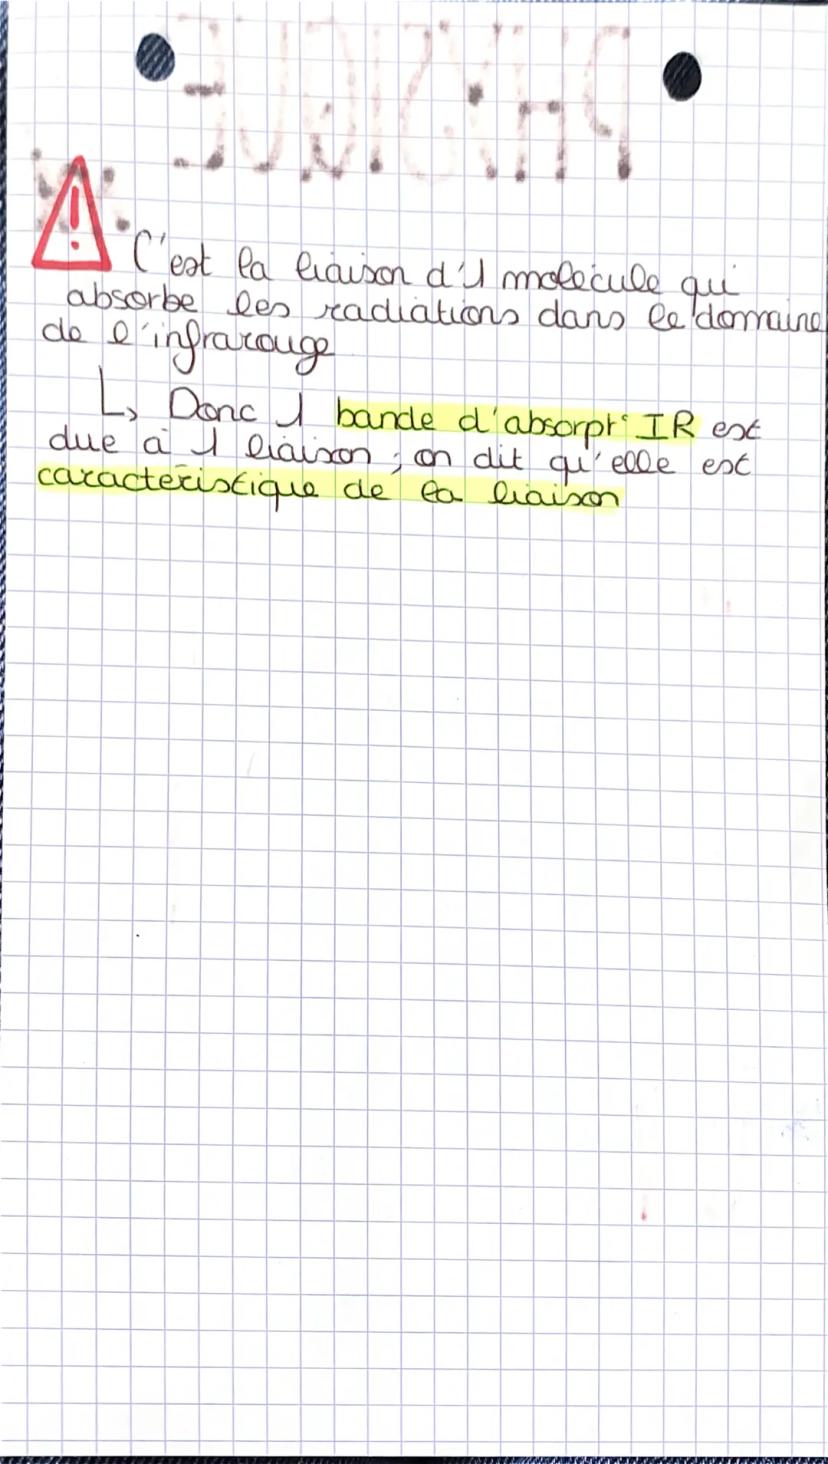 PHYSIQUE
!
C'est la liaison d'1 molécule qui
absorbe les radiations dans le domaine
de l'infrarouge
L, Donc 1 bande d'absorpt° IR est
due à 1 liaison ; on dit qu'elle est
caractéristique de la liaison